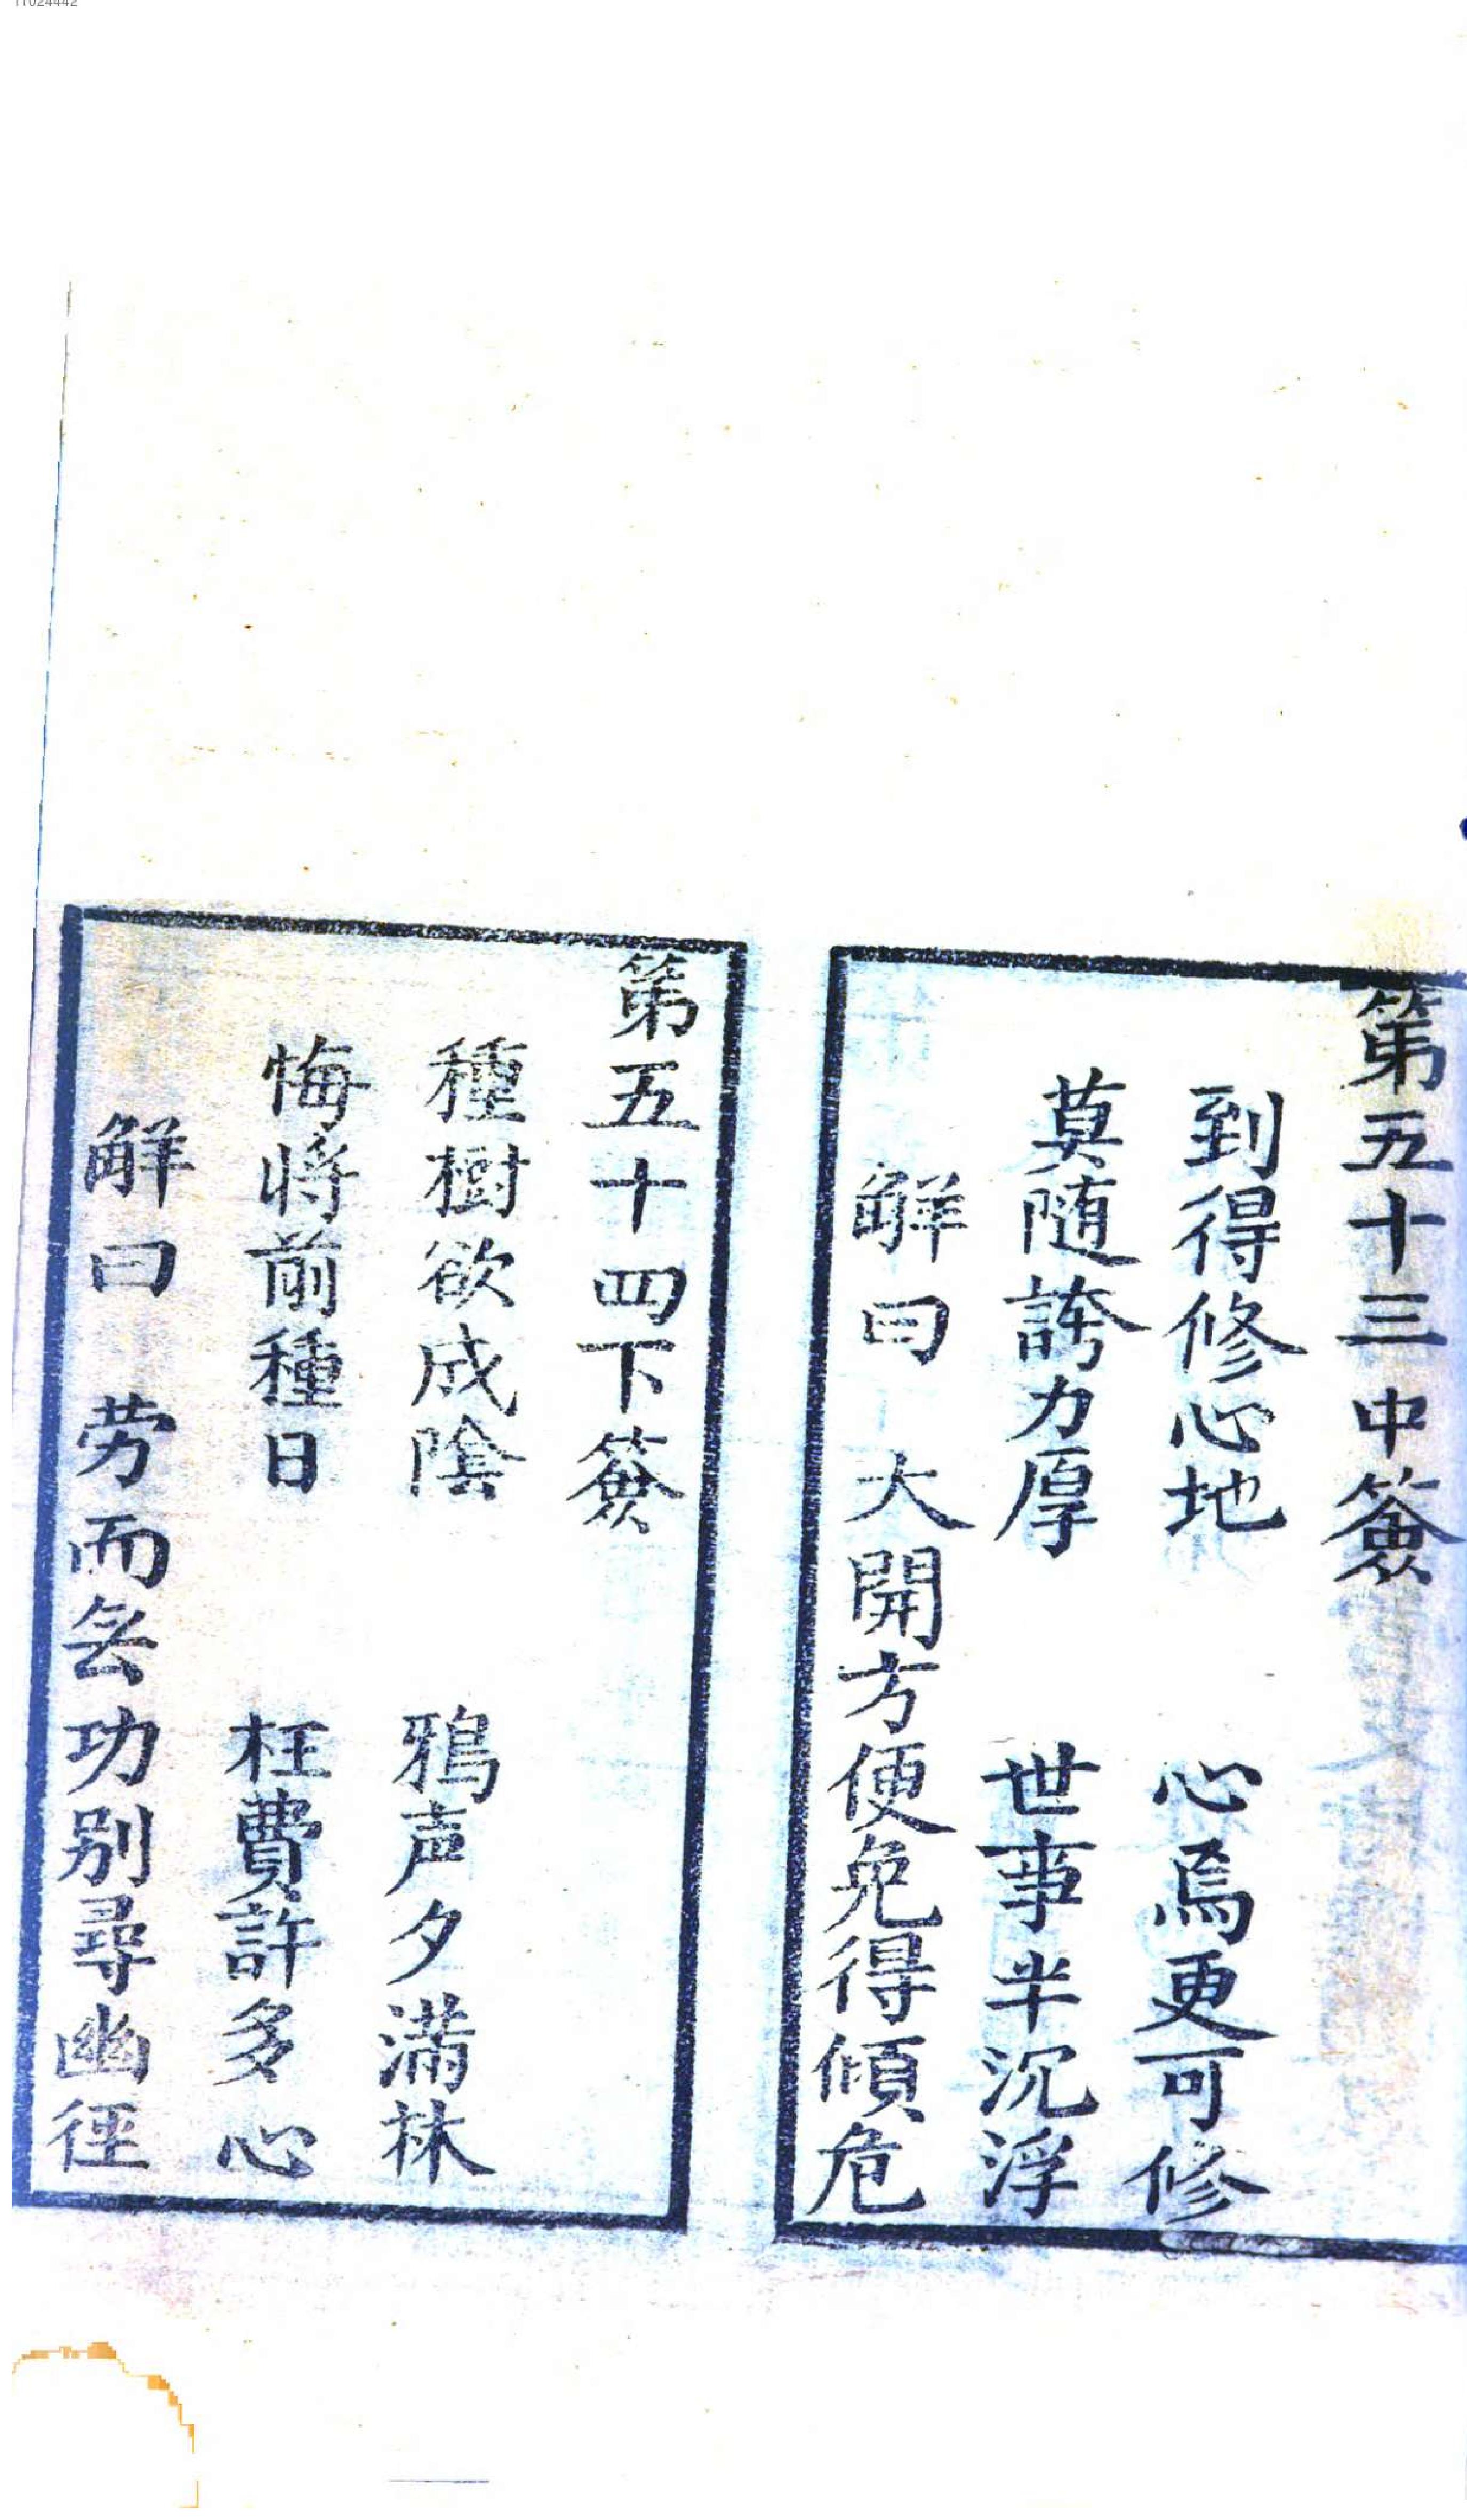 第五十三中簽
到得修心地　心焉更可修
莫隨誇力厚　世事半沉浮
解曰　大開方便免得傾危
第五十四下簽
種樹欲成陰　鴉声夕滿林
悔将前種日　枉費許多心
解曰　劳而无功别尋幽徑